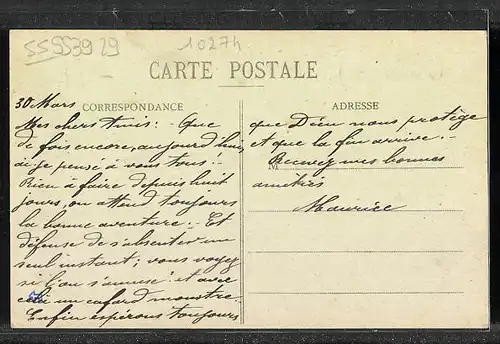 5553929
10274
CARTE POSTALE
30 Mars
CORRESPONDANCE
Mes chers Amis : - Que
de fois encore, aujourd'hui,
ai-je pensé à vous tous : -
Rien à faire depuis huit
jours, on attend toujours
la bonne aventure : - Et
défense de s'absenter un
seul instant ; vous voyez
si l'on s'amuse ! et avec
cela un cafard monstre.
Enfin espérons toujours
ADRESSE
que Dieu nous protège
et que la fin arrive. -
M
Recevez mes bonnes
amitiés
Maurice